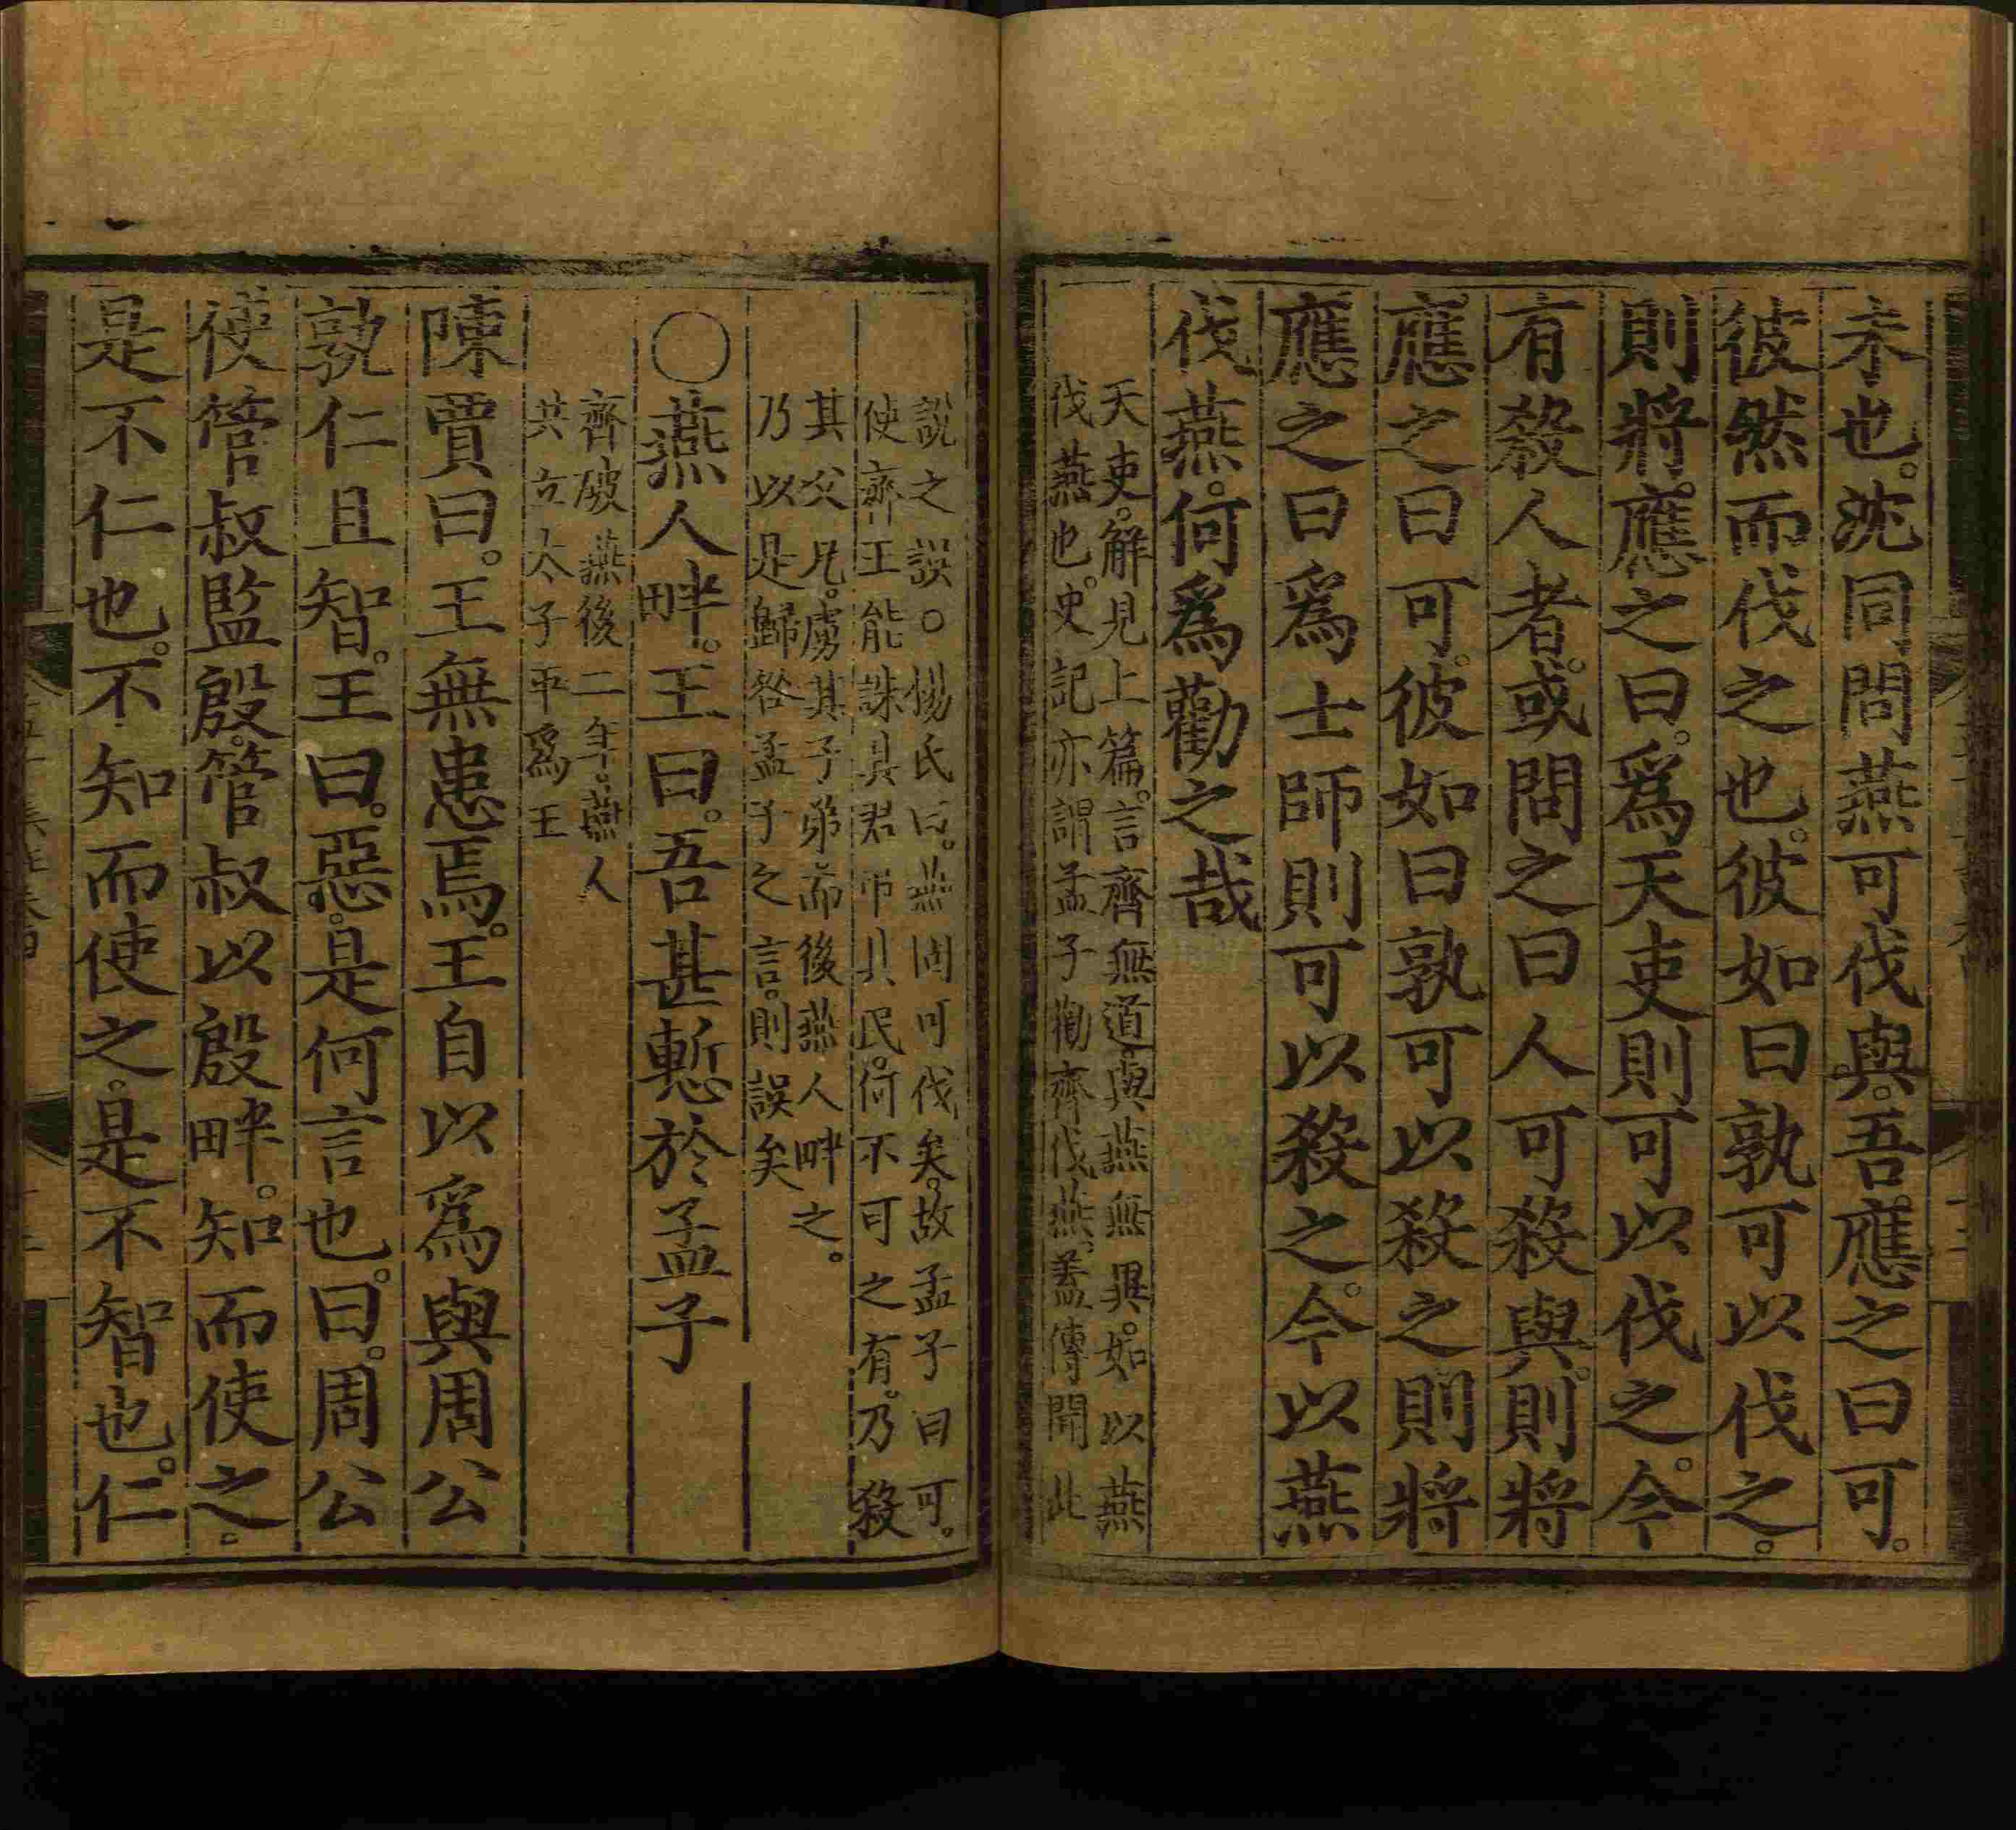 未也。沈同問燕可伐與。吾應之曰可。
彼然而伐之也。彼如曰孰可以伐之。
則將應之曰。爲天吏則可以伐之。今
有殺人者。或問之曰人可殺與。則將
應之曰可。彼如曰孰可以殺之則將
應之曰爲士師則可以殺之。今以燕
伐燕。何爲勸之哉
天吏。解見上篇。言齊無道。與燕無異。如以燕
伐燕也。史記亦謂孟子勸齊伐燕。蓋傳聞此
說之誤○楊氏曰。燕固可伐矣。故孟子曰可。
使齊王能誅其君吊其民。何不可之有。乃殺
其父兄。虜其子弟。而後燕人畔之。
乃以是歸咎孟子之言。則誤矣
○燕人畔。王曰。吾甚慙於孟子
齊破燕後二年。燕人
共立太子平爲王
陳賈曰。王無患焉。王自以爲與周公
孰仁且智。王曰。惡。是何言也。曰。周公
使管叔監殷。管叔以殷畔。知而使之。
是不仁也。不知而使之。是不智也。仁